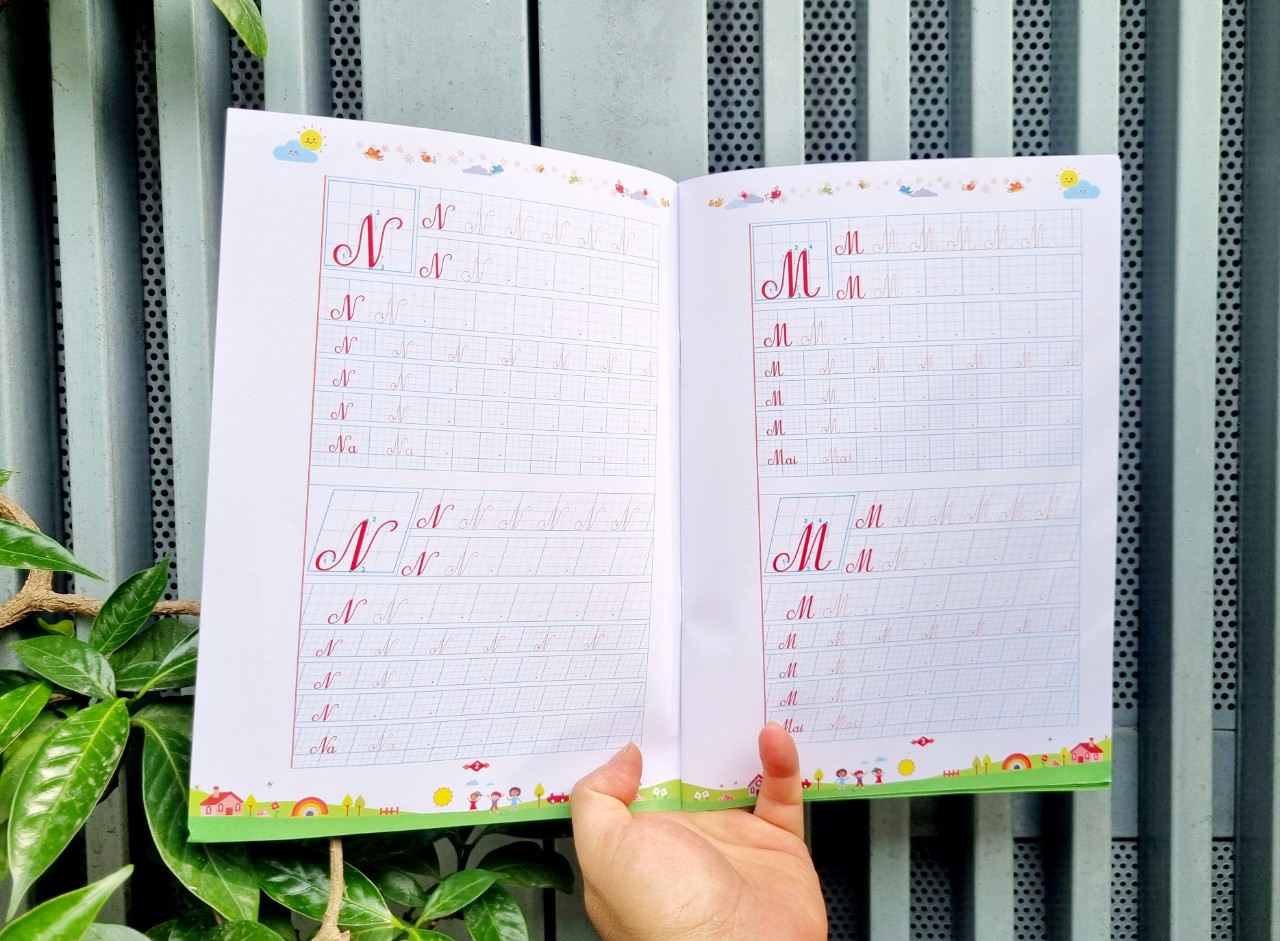 N
N N N N N N
N N
N N
N N N N N N N
N N
N N
Na Na
N
N N N N N N
N N
N N
N N N N N N
N N
N
Na Na
2
M
M M M M M M
M M
M M
M M M M M M M
M M
M M
Mai Mai
M
M M M M M M
M M
M M
M M M M M M M
M M
M M
Mai Mai
3